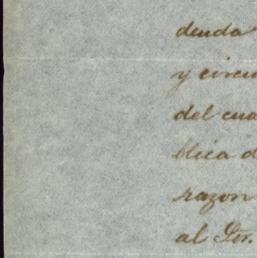 deuda
y circun
del cua
blica d
razon
al Sr.